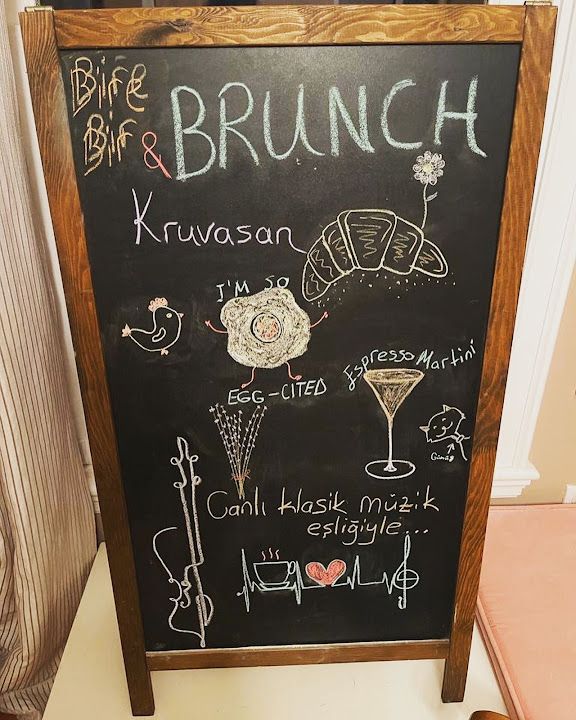 Bire
Bir & BRUNCH
Kruvasan
I'M SO
EGG-CITED
Espresso Martini
Canlı klasik müzik
eşliğiyle...